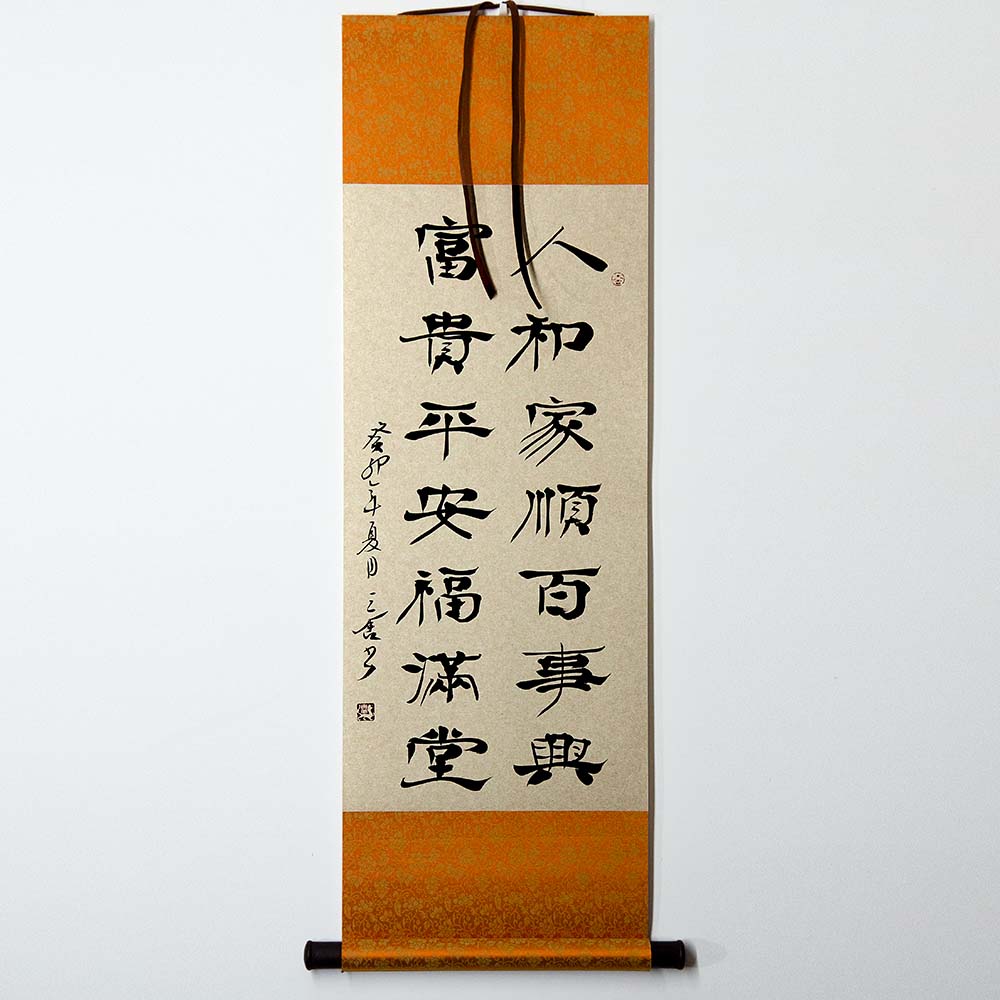 人和家順百事興
富貴平安福滿堂
癸卯年夏月三舍书